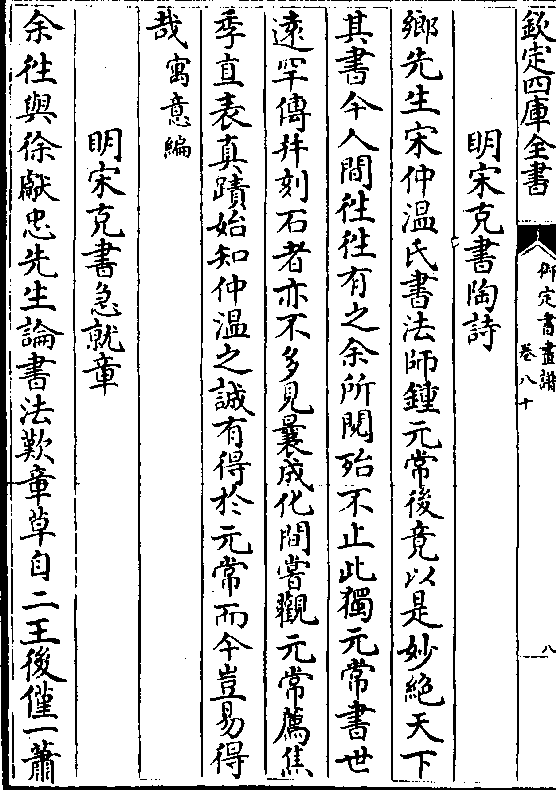 欽定四庫全書
御定書畫譜
卷八十
八
明宋克書陶詩
鄉先生宋仲温氏書法師鍾元常後竟以是妙絶天下
其書今人間徃徃有之余所閱殆不止此獨元常書世
逺罕傳幷刻石者亦不多見曩成化間嘗觀元常薦焦
季直表真蹟始知仲温之誠有得於元常而今豈易得
哉寓意編
明宋克書急就章
余徃與徐獻忠先生論書法歎章草自二王後僅一蕭